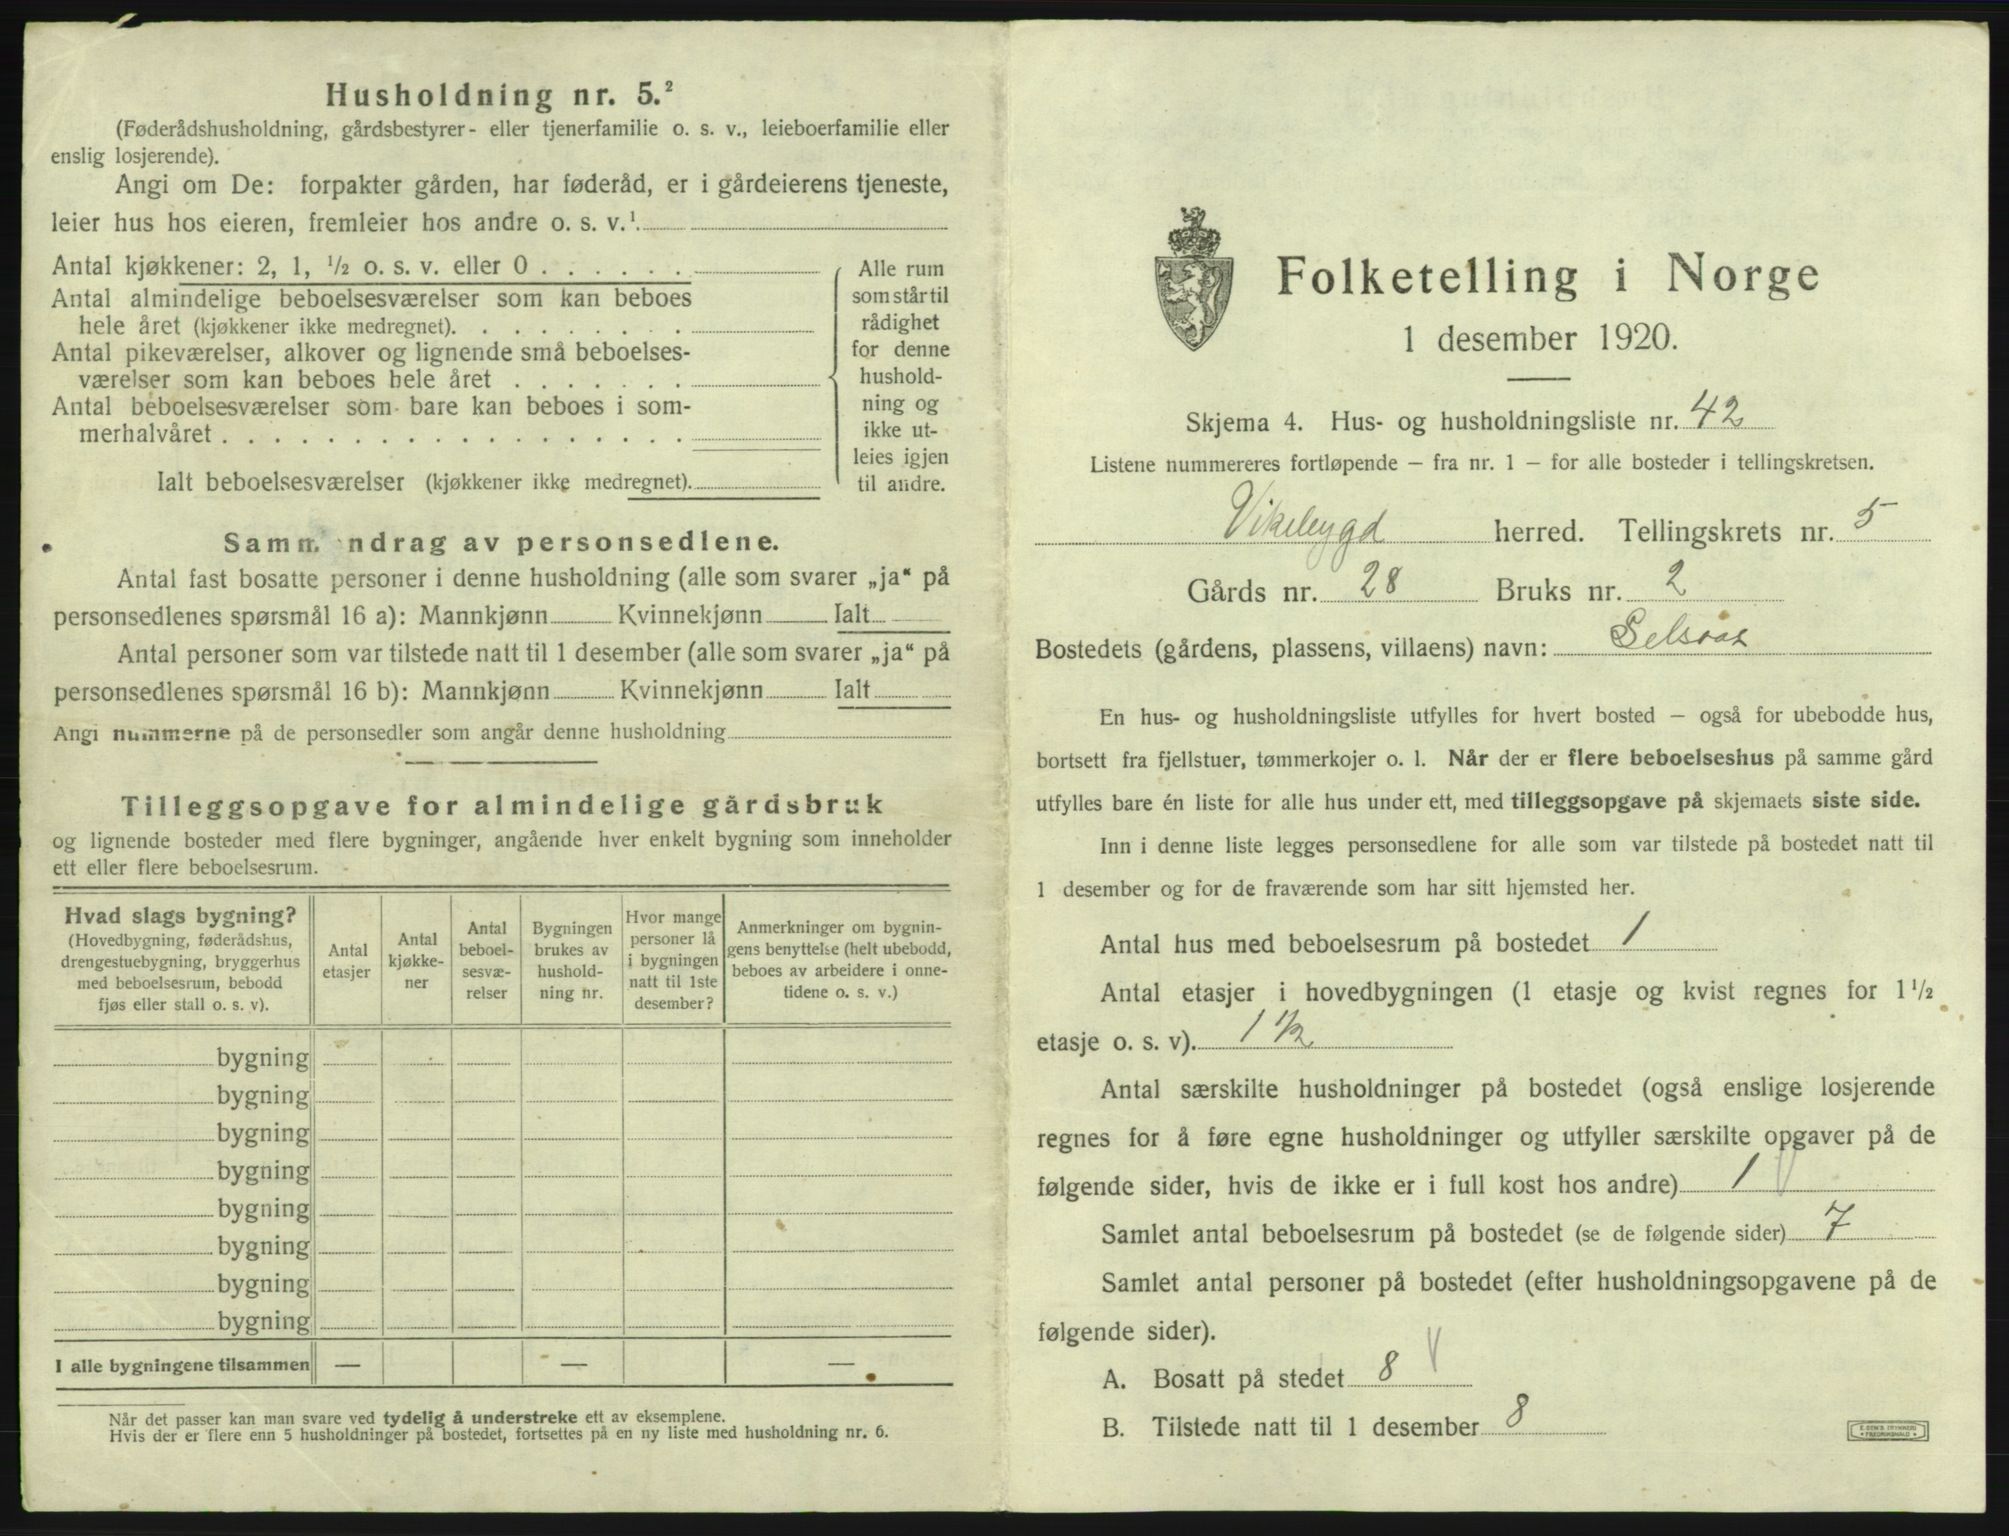 Husholdning nr. 5.²
(Føderådshusholdning, gårdsbestyrer- eller tjenerfamilie o. s. v., leieboerfamilie eller
enslig losjerende).
Angi om De: forpakter gården, har føderåd, er i gårdeierens tjeneste,
leier hus hos eieren, fremleier hos andre o. s. v.¹
Antal kjøkkener: 2, 1, ½ o. s. v. eller 0 . . . . . .
Antal almindelige beboelsesværelser som kan beboes
hele året (kjøkkener ikke medregnet). . . . . . . . .
Antal pikeværelser, alkover og lignende små beboelses-
værelser som kan beboes hele året . . . . . . .
Antal beboelsesværelser som bare kan beboes i som-
merhalvåret . . . . . . . . . . . . . . . . . .
Ialt beboelsesværelser (kjøkkener ikke medregnet).
Alle rum
som står til
rådighet
for denne
hushold-
ning og
ikke ut-
leies igjen
til andre.
Samm ndrag av personsedlene.
Antal fast bosatte personer i denne husholdning (alle som svarer „ja“ på
personsedlenes spørsmål 16 a): Mannkjønn Kvinnekjønn Ialt
Antal personer som var tilstede natt til 1 desember (alle som svarer „ja“ på
personsedlenes spørsmål 16 b): Mannkjønn Kvinnekjønn Ialt
Angi nummerne på de personsedler som angår denne husholdning
Tilleggsopgave for almindelige gårdsbruk
og lignende bosteder med flere bygninger, angående hver enkelt bygning som inneholder
ett eller flere beboelsesrum.
Hvad slags bygning?
(Hovedbygning, føderådshus,
drengestuebygning, bryggerhus
med beboelsesrum, bebodd
fjøs eller stall o. s. v).
Antal
etasjer
Antal
kjøkke-
ner
Antal
beboel-
sesvæ-
relser
Bygningen
brukes av
hushold-
ning nr.
Hvor mange
personer lå
i bygningen
natt til 1ste
desember?
Anmerkninger om bygnin-
gens benyttelse (helt ubebodd,
beboes av arbeidere i onne-
tidene o. s. v.)
bygning
bygning
bygning
bygning
bygning
bygning
bygning
bygning
I alle bygningene tilsammen — — —
Når det passer kan man svare ved tydelig å understreke ett av eksemplene.
Hvis der er flere enn 5 husholdninger på bostedet, fortsettes på en ny liste med husholdning nr. 6.
Folketelling i Norge
1 desember 1920.
Skjema 4. Hus- og husholdningsliste nr. 42
Listene nummereres fortløpende — fra nr. 1 — for alle bosteder i tellingskretsen.
Vikebygd herred. Tellingskrets nr. 5
Gårds nr. 28 Bruks nr. 2
Bostedets (gårdens, plassens, villaens) navn:
En hus- og husholdningsliste utfylles for hvert bosted — også for ubebodde hus,
bortsett fra fjellstuer, tømmerkojer o. l. Når der er flere beboelseshus på samme gård
utfylles bare én liste for alle hus under ett, med tilleggsopgave på skjemaets siste side.
Inn i denne liste legges personsedlene for alle som var tilstede på bostedet natt til
1 desember og for de fraværende som har sitt hjemsted her.
Antal hus med beboelsesrum på bostedet 1
Antal etasjer i hovedbygningen (1 etasje og kvist regnes for 1½
etasje o. s. v). 1½
Antal særskilte husholdninger på bostedet (også enslige losjerende
regnes for å føre egne husholdninger og utfyller særskilte opgaver på de
følgende sider, hvis de ikke er i full kost hos andre) 1
Samlet antal beboelsesrum på bostedet (se de følgende sider) 7
Samlet antal personer på bostedet (efter husholdningsopgavene på de
følgende sider).
A. Bosatt på stedet 8
B. Tilstede natt til 1 desember 8